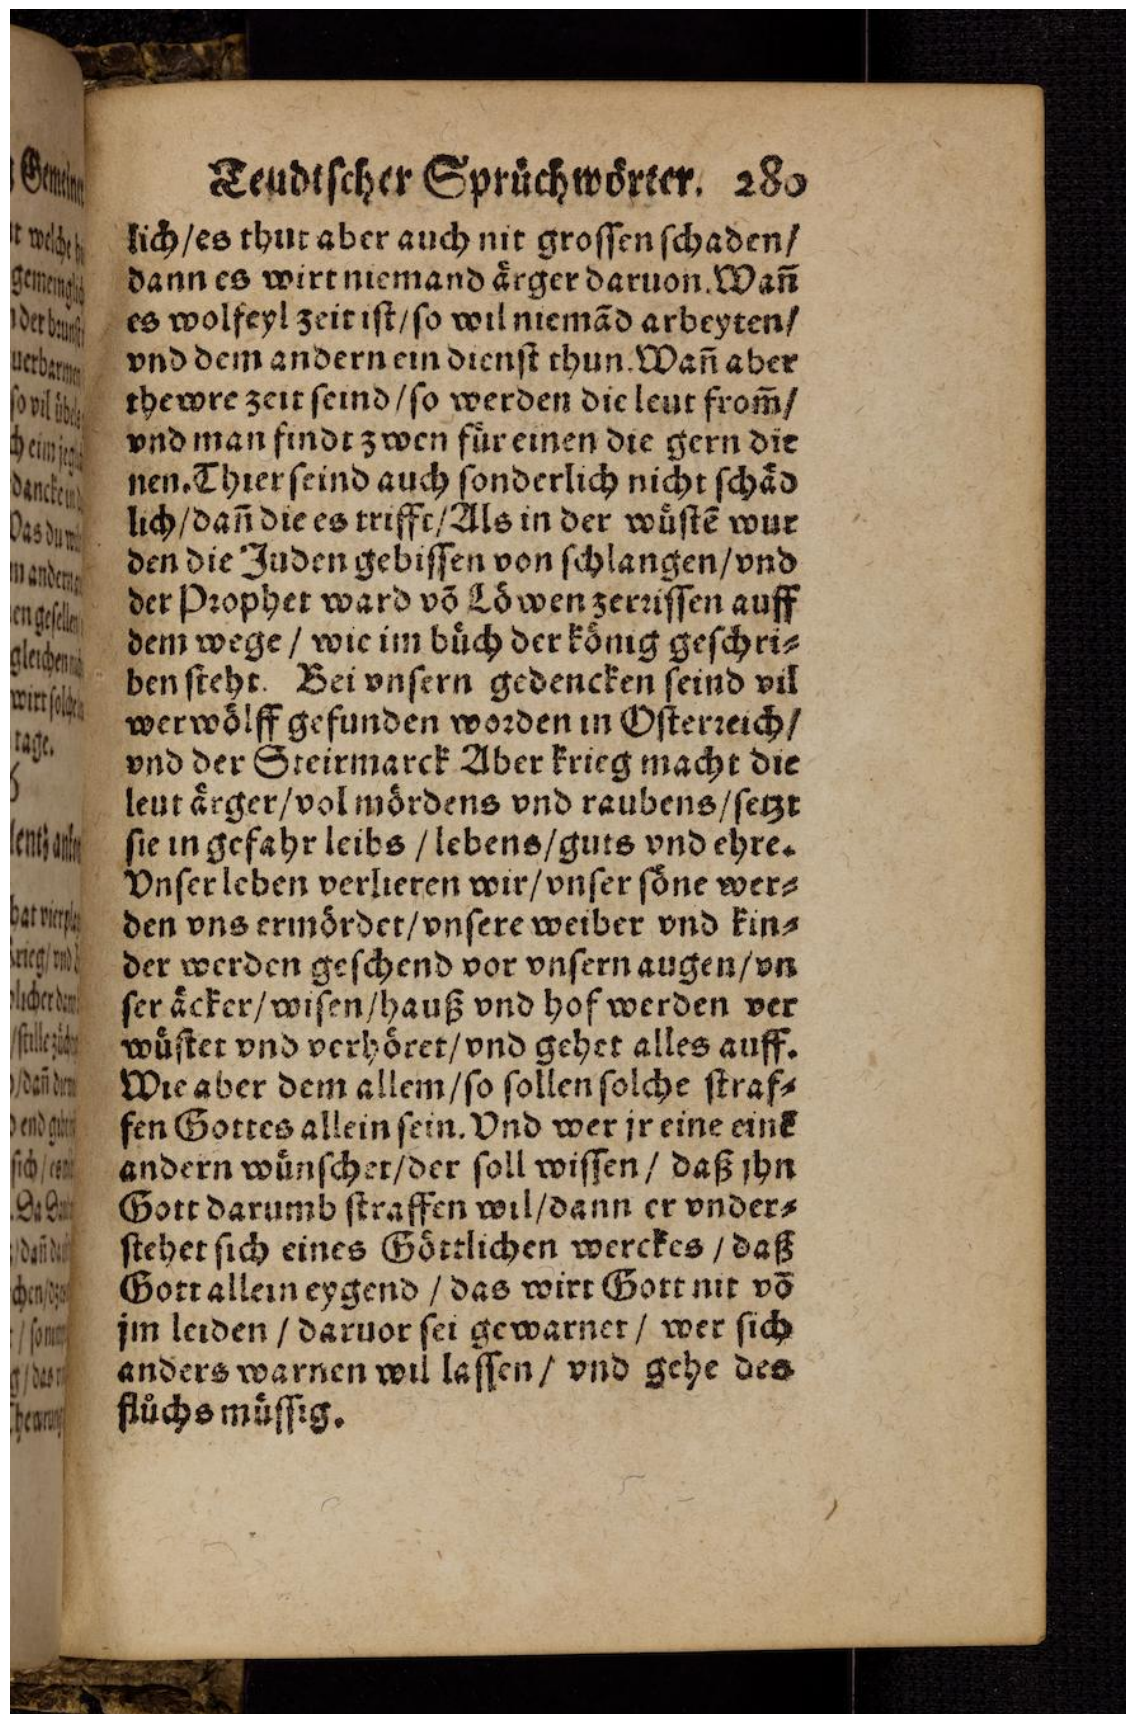 Teudtscher Sprüchwörter. 280
lich/es thut aber auch nit grossen schaden/
dann es wirt niemand ärger daruon. Wañ
es wolfeyl zeit ist/so wil niemãd arbeyten/
vnd dem andern ein dienst thun. Wañ aber
thewre zeit seind/so werden die leut from̃/
vnd man findt zwen für einen die gern die
nen. Thier seind auch sonderlich nicht schäd
lich/dañ die es trifft/Als in der wüstẽ wur
den die Juden gebissen von schlangen/vnd
der Prophet ward võ Löwen zerrissen auff
dem wege / wie im bůch der könig geschri⸗
ben steht. Bei vnsern gedencken seind vil
werwölff gefunden worden in Osterreich/
vnd der Steirmarck Aber krieg macht die
leut ärger/vol mördens vnd raubens/setzt
sie in gefahr leibs / lebens/guts vnd ehre.
Vnser leben verlieren wir/vnser söne wer⸗
den vns ermördet/vnsere weiber vnd kin⸗
der werden geschend vor vnsern augen/vn
ser äcker/wisen/hauß vnd hof werden ver
wüstet vnd verhöret/vnd gehet alles auff.
Wie aber dem allem/so sollen solche straf⸗
fen Gottes allein sein. Vnd wer jr eine einẽ
andern wünschet/der soll wissen / daß jhn
Gott darumb straffen wil/dann er vnder⸗
stehet sich eines Göttlichen werckes / daß
Gott allein eygend / das wirt Gott nit võ
jm leiden / daruor sei gewarnet / wer sich
anders warnen wil lassen / vnd gehe des
flůchs müssig.